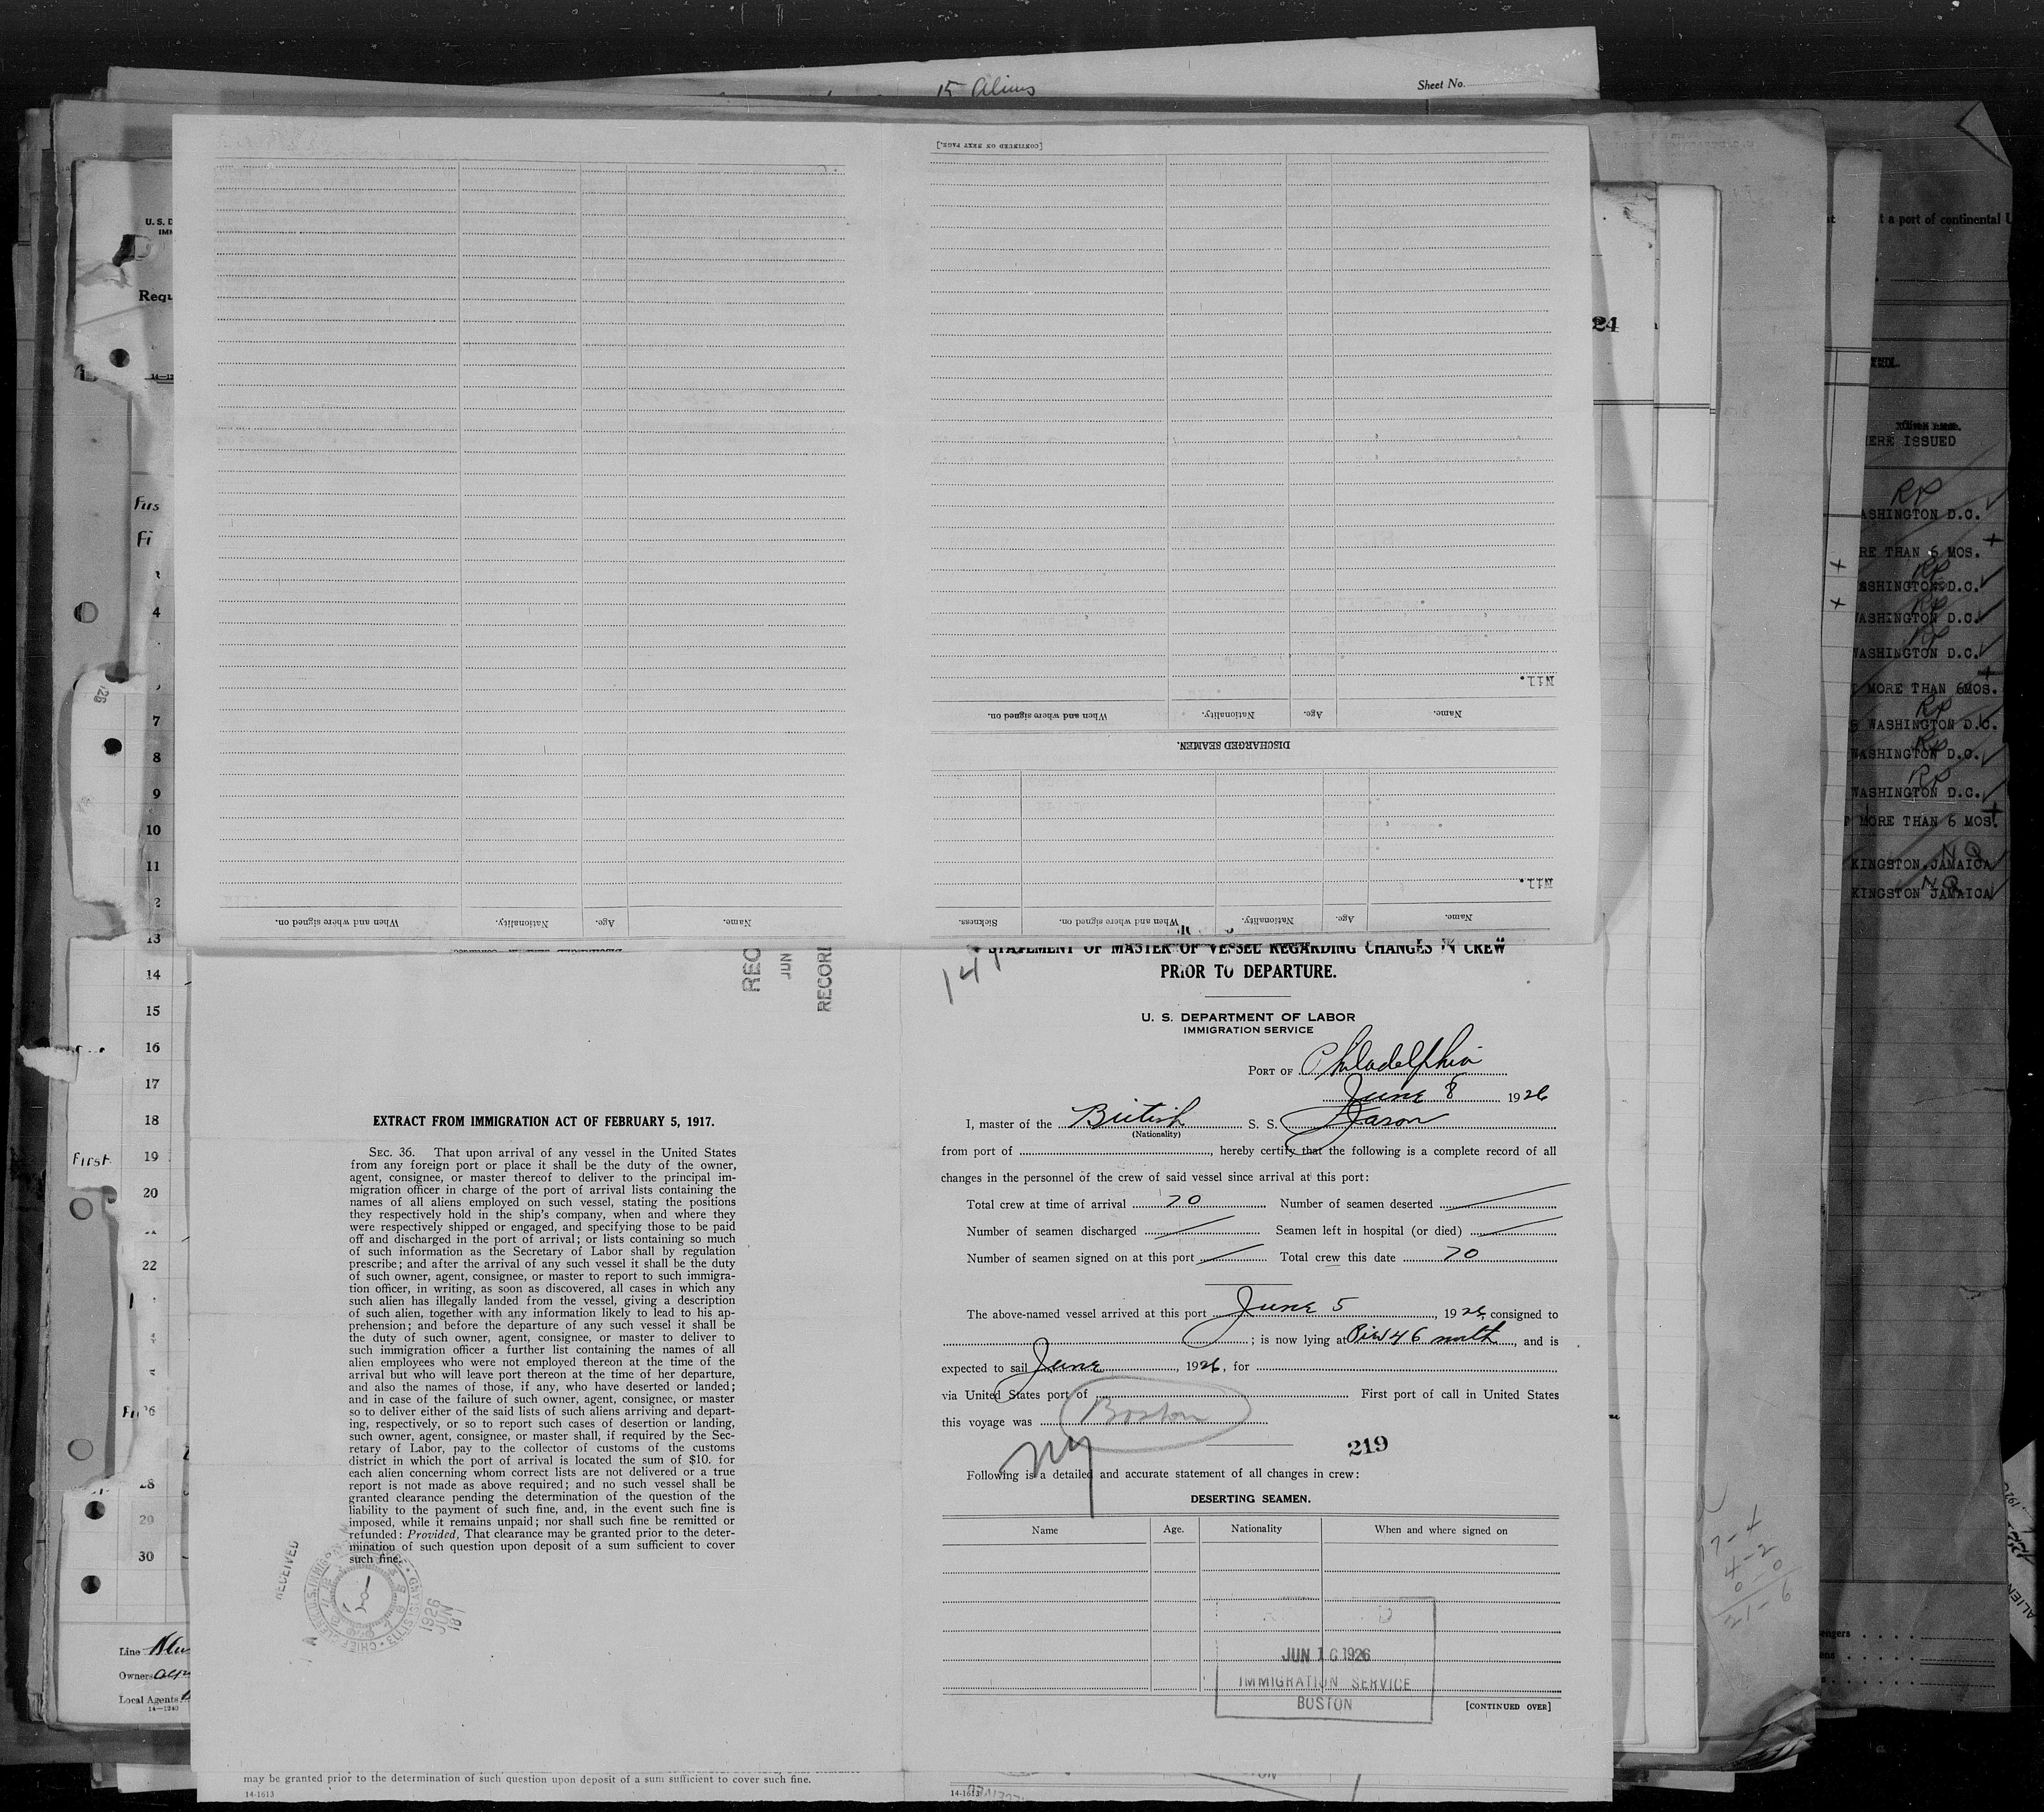 15 Aliens
Sheet No.
[CONTINUED ON NEXT PAGE.]
U. S. D
IMM
Requ
14—12
t a port of continental U
21
ERE ISSUED
Firs
Fi
RP
ASHINGTON D.C.
RE THAN 6 MOS.
RP
ASHINGTON D.C.
RP
WASHINGTON D.C.
RP
WASHINGTON D.C.
MORE THAN 6MOS.
RP
WASHINGTON D.C.
RP
WASHINGTON D.C.
RP
WASHINGTON D.C.
MORE THAN 6 MOS.
NQ
KINGSTON JAMAICA
NQ
KINGSTON JAMAICA
4
7
8
9
10
11
2
13
14
15
16
17
18
First 19
20
22
26
28
29
30
Nil.
When and where signed on. Nationality. Age. Name.
DISCHARGED SEAMEN.
Nil.
When and where signed on. Nationality. Age. Name.
Sickness. When and where signed on. Nationality. Age. Name.
REC
JUN
RECORD
14
STATEMENT OF MASTER OF VESSEL REGARDING CHANGES IN CREW
PRIOR TO DEPARTURE.
U. S. DEPARTMENT OF LABOR
IMMIGRATION SERVICE
PORT OF Philadelphia
June 8 1926
I, master of the British S. S. Jason
(Nationality)
from port of , hereby certify that the following is a complete record of all
changes in the personnel of the crew of said vessel since arrival at this port:
Total crew at time of arrival 70 Number of seamen deserted
Number of seamen discharged Seamen left in hospital (or died)
Number of seamen signed on at this port Total crew this date 70
The above-named vessel arrived at this port June 5, 1926, consigned to
; is now lying at Pier 46 north, and is
expected to sail June, 1926, for
via United States port of First port of call in United States
this voyage was Boston
NY
219
Following is a detailed and accurate statement of all changes in crew:
DESERTING SEAMEN.
Name Age. Nationality When and where signed on
JUN 16 1926
IMMIGRATION SERVICE
BOSTON
[CONTINUED OVER]
14-1613
EXTRACT FROM IMMIGRATION ACT OF FEBRUARY 5, 1917.
SEC. 36. That upon arrival of any vessel in the United States
from any foreign port or place it shall be the duty of the owner,
agent, consignee, or master thereof to deliver to the principal im-
migration officer in charge of the port of arrival lists containing the
names of all aliens employed on such vessel, stating the positions
they respectively hold in the ship's company, when and where they
were respectively shipped or engaged, and specifying those to be paid
off and discharged in the port of arrival; or lists containing so much
of such information as the Secretary of Labor shall by regulation
prescribe; and after the arrival of any such vessel it shall be the duty
of such owner, agent, consignee, or master to report to such immigra-
tion officer, in writing, as soon as discovered, all cases in which any
such alien has illegally landed from the vessel, giving a description
of such alien, together with any information likely to lead to his ap-
prehension; and before the departure of any such vessel it shall be
the duty of such owner, agent, consignee, or master to deliver to
such immigration officer a further list containing the names of all
alien employees who were not employed thereon at the time of the
arrival but who will leave port thereon at the time of her departure,
and also the names of those, if any, who have deserted or landed;
and in case of the failure of such owner, agent, consignee, or master
so to deliver either of the said lists of such aliens arriving and depart-
ing, respectively, or so to report such cases of desertion or landing,
such owner, agent, consignee, or master shall, if required by the Sec-
retary of Labor, pay to the collector of customs of the customs
district in which the port of arrival is located the sum of $10. for
each alien concerning whom correct lists are not delivered or a true
report is not made as above required; and no such vessel shall be
granted clearance pending the determination of the question of the
liability to the payment of such fine, and, in the event such fine is
imposed, while it remains unpaid; nor shall such fine be remitted or
refunded: Provided, That clearance may be granted prior to the deter-
mination of such question upon deposit of a sum sufficient to cover
such fine.
RECEIVED
1926
JUN
18
Line
Owners
Local Agents
14—1240
may be granted prior to the determination of such question upon deposit of a sum sufficient to cover such fine.
14-1613